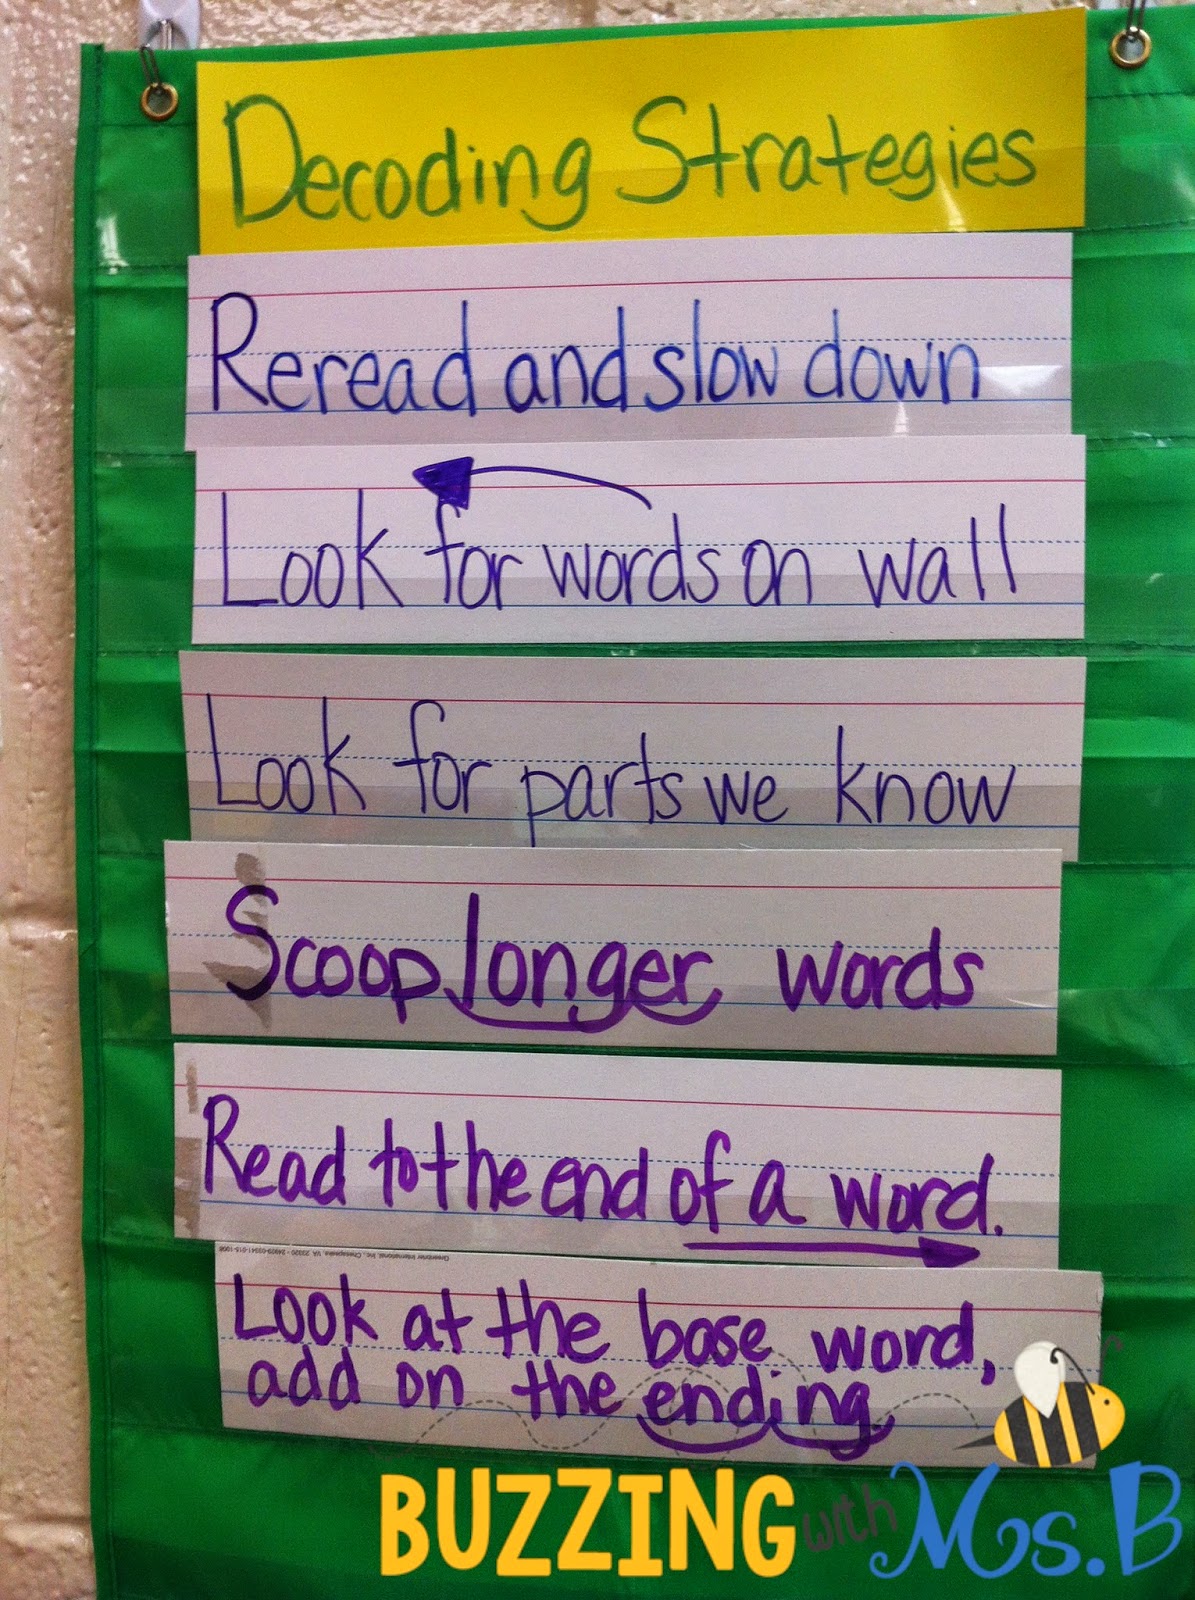 Decoding Strategies
Reread and slow down
Look for words on wall
Look for parts we know
Scoop longer words
Read to the end of a word.
Greenbrier International, Inc. Chesapeake, VA 23320
Look at the base word,
add on the ending.
BUZZING with Ms. B